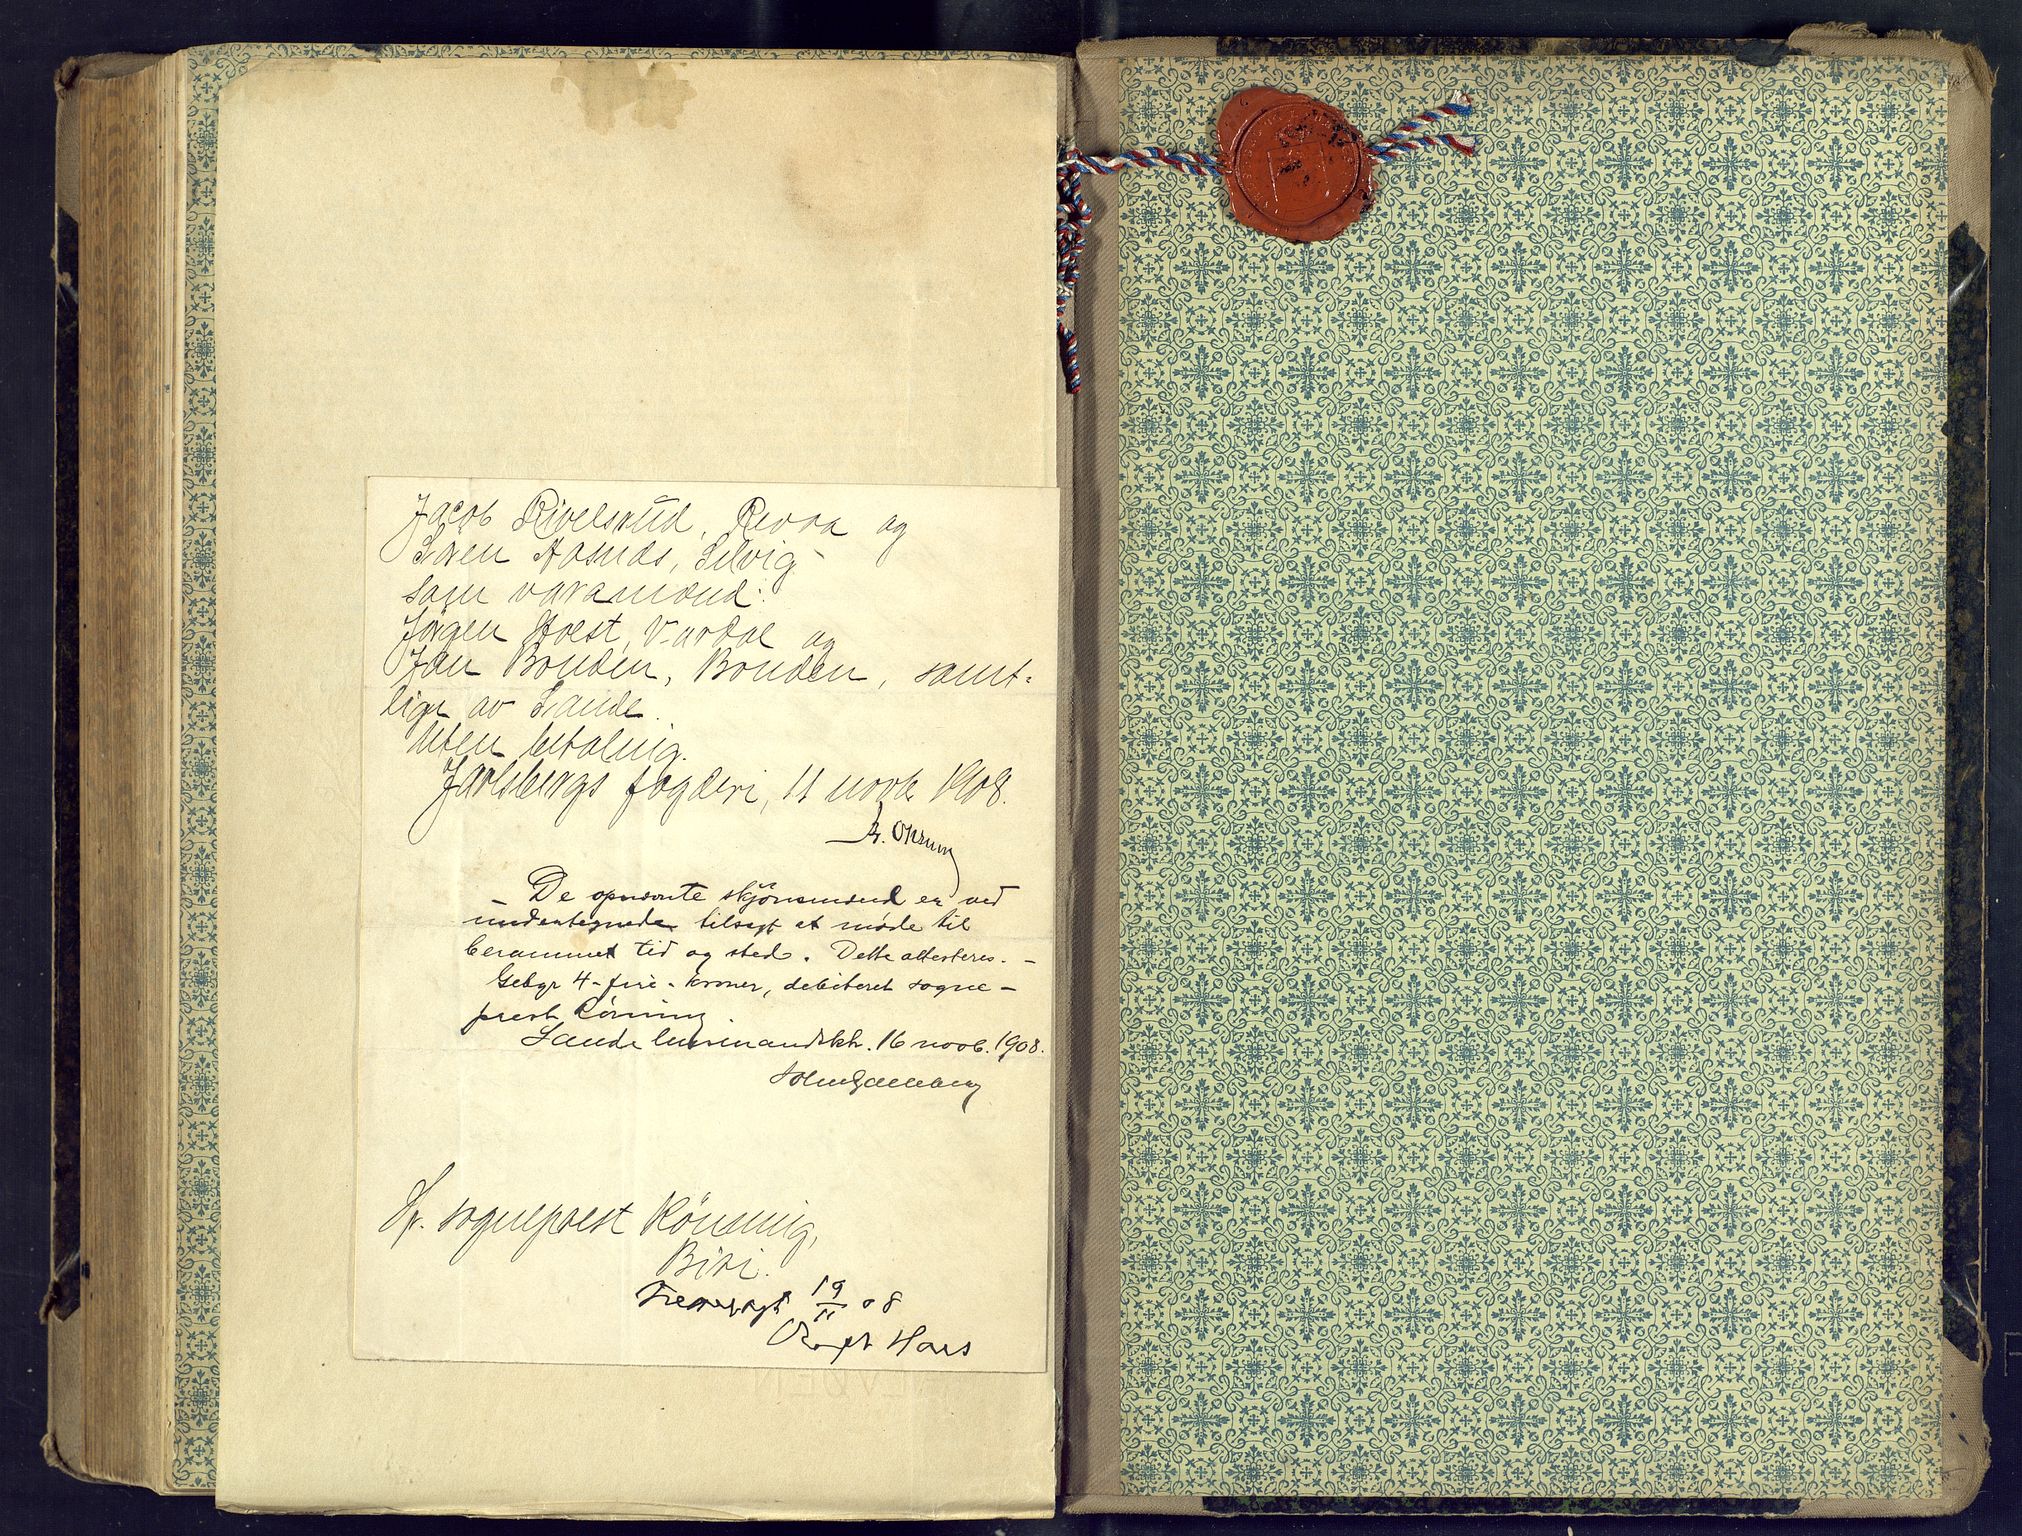 Jacob Rivelsrud, Revaa og
Søren Aasnes, Selvig
som varamænd:
Jørgen Holst, Vardal og
Jan Bonden, Bonden, samt-
lige av Sande.
Uten betaling.
Jarlsbergs fogderi, 11 novb. 1908.
De opnævnte skjønsmænd er ved
undertegnede tilsagt at møde til
berammet tid og sted. Dette attesteres. -
Gebyr 4 - fire - kroner, debiteret sogne-
prest Rönning.
Sande lensmandsktr. 16 novb. 1908.
Hr. sogneprest Rönning,
Biri.
Fremlagt 19/11 08